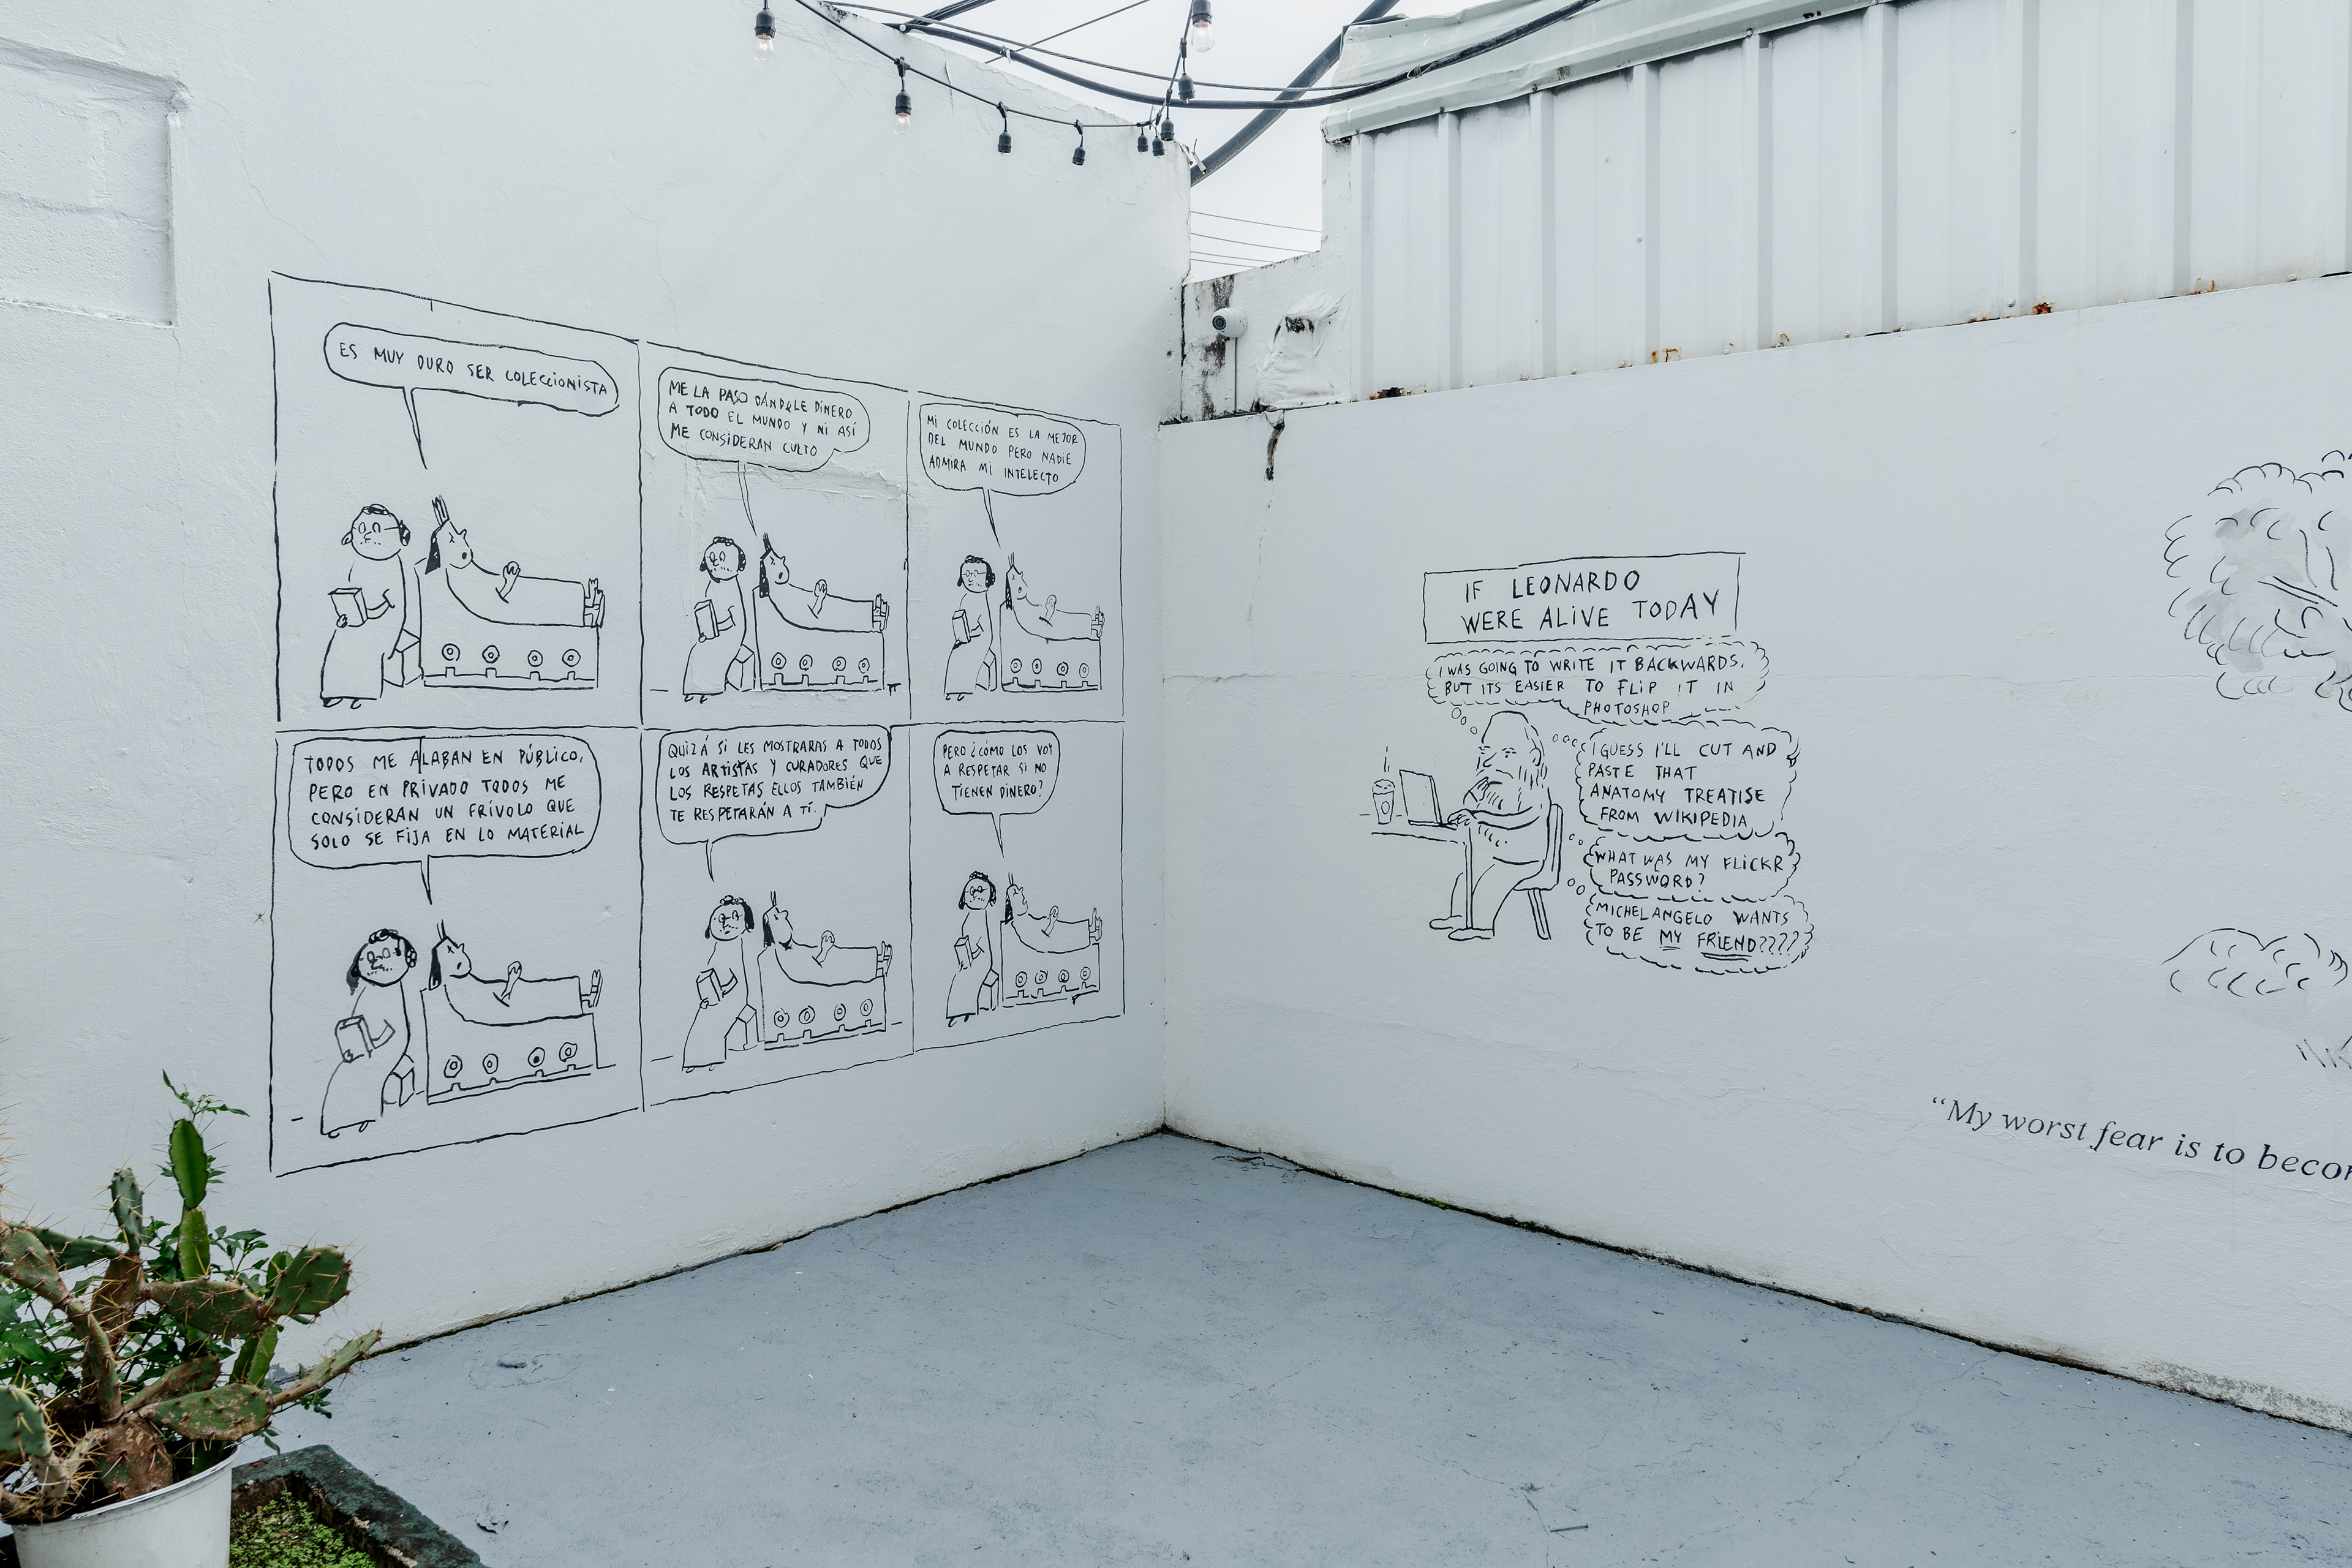 ES MUY DURO SER COLECCIONISTA
ME LA PASO DÁNDOLE DINERO
A TODO EL MUNDO Y NI ASÍ
ME CONSIDERAN CULTO
MI COLECCIÓN ES LA MEJOR
DEL MUNDO PERO NADIE
ADMIRA MI INTELECTO
TODOS ME ALABAN EN PÚBLICO,
PERO EN PRIVADO TODOS ME
CONSIDERAN UN FRÍVOLO QUE
SOLO SE FIJA EN LO MATERIAL
QUIZÁ SI LES MOSTRARAS A TODOS
LOS ARTISTAS Y CURADORES QUE
LOS RESPETAS ELLOS TAMBIÉN
TE RESPETARÁN A TÍ.
PERO ¿CÓMO LOS VOY
A RESPETAR SI NO
TIENEN DINERO?
IF LEONARDO
WERE ALIVE TODAY
I WAS GOING TO WRITE IT BACKWARDS,
BUT ITS EASIER TO FLIP IT IN
PHOTOSHOP
I GUESS I'LL CUT AND
PASTE THAT
ANATOMY TREATISE
FROM WIKIPEDIA
WHAT WAS MY FLICKR
PASSWORD?
MICHELANGELO WANTS
TO BE MY FRIEND????
"My worst fear is to becom